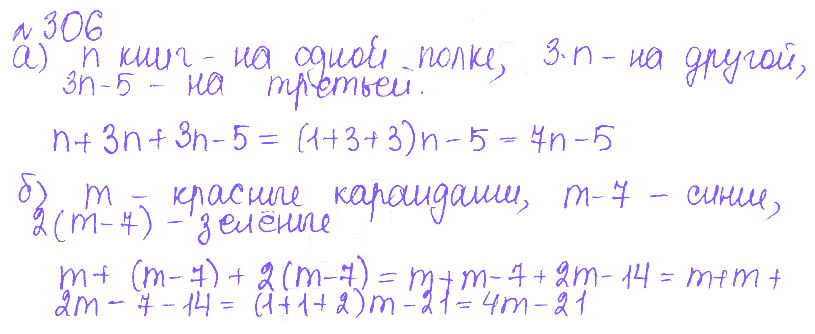 № 306
а) n книг - на одной полке, 3·n - на другой,
3n-5 - на третьей.
n + 3n + 3n - 5 = (1+3+3)n - 5 = 7n - 5
б) m - красные карандаши, m-7 - синие,
2(m-7) - зелёные
m + (m-7) + 2(m-7) = m+m-7+2m-14 = m+m+
2m - 7 - 14 = (1+1+2)m - 21 = 4m - 21